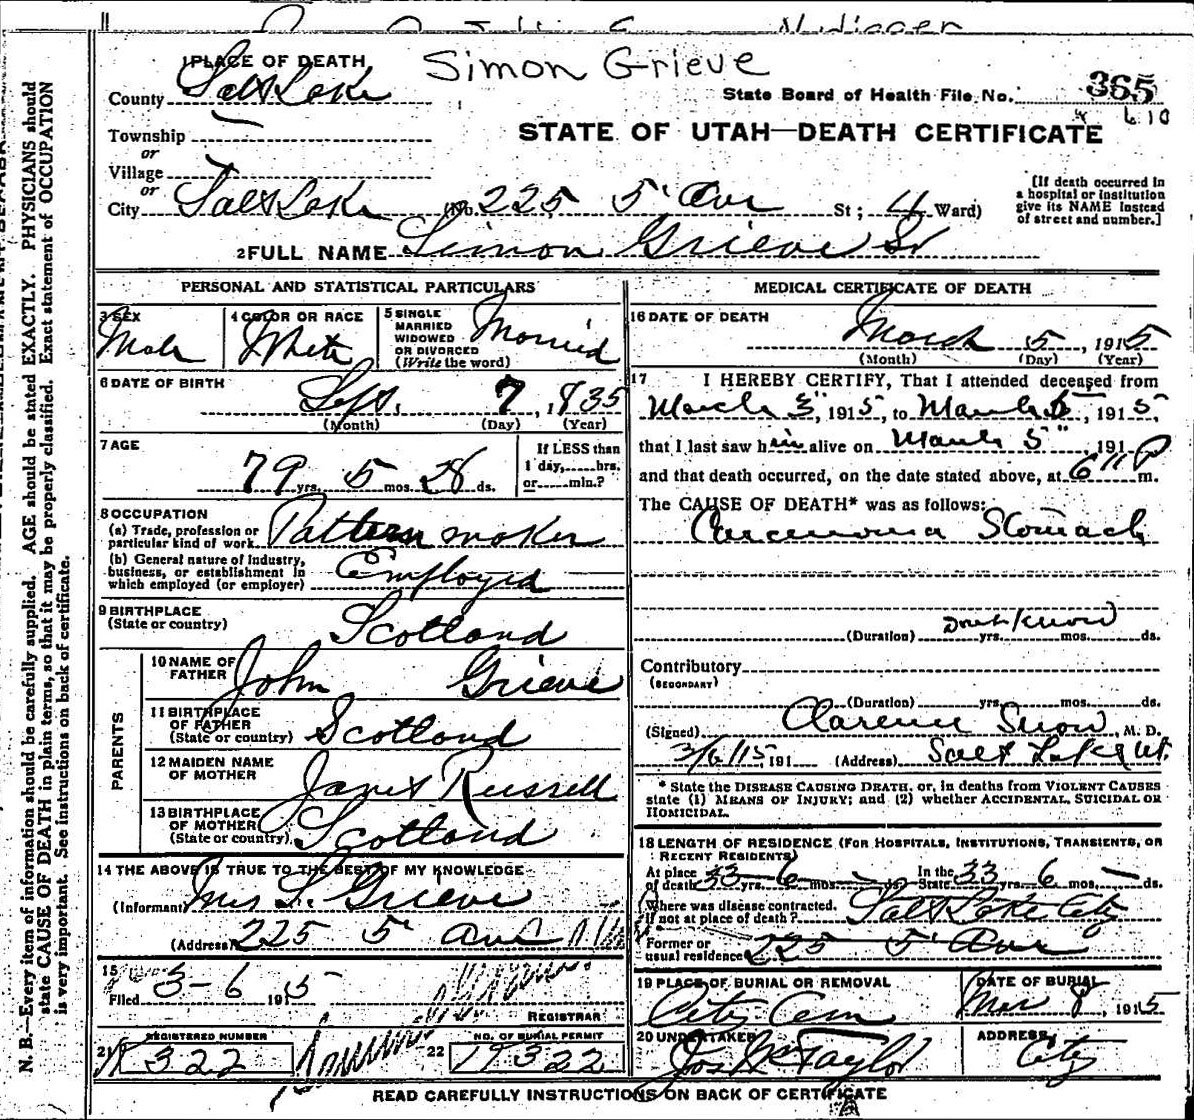 Simon Grieve
1 PLACE OF DEATH
County Salt Lake
State Board of Health File No. 365
610
Township
or
Village
or
STATE OF UTAH—DEATH CERTIFICATE
City Salt Lake (No. 225 5' Ave St; 4 Ward)
[If death occurred in
a hospital or institution
give its NAME instead
of street and number.]
2 FULL NAME Simon Grieve Sr
PERSONAL AND STATISTICAL PARTICULARS
3 SEX
Male
4 COLOR OR RACE
White
5 SINGLE
MARRIED
WIDOWED
OR DIVORCED
(Write the word)
Married
6 DATE OF BIRTH
Sept. 7, 1835
(Month) (Day) (Year)
7 AGE
79 yrs. 5 mos. 28 ds.
If LESS than
1 day,......hrs.
or......min.?
8 OCCUPATION
(a) Trade, profession or
particular kind of work Pattern maker
(b) General nature of industry,
business, or establishment in
which employed (or employer) Employed
9 BIRTHPLACE
(State or country) Scotland
PARENTS
10 NAME OF
FATHER John Grieve
11 BIRTHPLACE
OF FATHER
(State or country) Scotland
12 MAIDEN NAME
OF MOTHER Janet Russell
13 BIRTHPLACE
OF MOTHER
(State or country) Scotland
14 THE ABOVE IS TRUE TO THE BEST OF MY KNOWLEDGE
(Informant) Mrs S. Grieve
(Address) 225 5' Ave
15
Filed 3-6 1915
REGISTRAR
REGISTERED NUMBER
21
322
22
NO. OF BURIAL PERMIT
19322
MEDICAL CERTIFICATE OF DEATH
16 DATE OF DEATH
March 5, 1915
(Month) (Day) (Year)
17 I HEREBY CERTIFY, That I attended deceased from
March 3", 1915, to March 5, 1915,
that I last saw him alive on March 5" 191
and that death occurred, on the date stated above, at 6" P m.
The CAUSE OF DEATH* was as follows:
Carcenoma Stomach
Don't know
(Duration) yrs. mos. ds.
Contributory
(SECONDARY)
(Duration) yrs. mos. ds.
(Signed) Clarence Snow, M. D.
3/6/15 191 (Address) Salt Lake Ut.
* State the DISEASE CAUSING DEATH, or, in deaths from VIOLENT CAUSES
state (1) MEANS OF INJURY; and (2) whether ACCIDENTAL, SUICIDAL OR
HOMICIDAL.
18 LENGTH OF RESIDENCE (FOR HOSPITALS, INSTITUTIONS, TRANSIENTS, OR
RECENT RESIDENTS)
At place of death 33 yrs. 6 mos. — ds. In the State 33 yrs. 6 mos. — ds.
Where was disease contracted,
if not at place of death? Salt Lake City
Former or
usual residence 225 5' Ave
19 PLACE OF BURIAL OR REMOVAL
City Cem
DATE OF BURIAL
Mar 8, 1915
20 UNDERTAKER
Jos Wm Taylor
ADDRESS
City
READ CAREFULLY INSTRUCTIONS ON BACK OF CERTIFICATE
N. B.—Every item of information should be carefully supplied. AGE should be stated EXACTLY. PHYSICIANS should
state CAUSE OF DEATH in plain terms, so that it may be properly classified. Exact statement of OCCUPATION
is very important. See instructions on back of certificate.